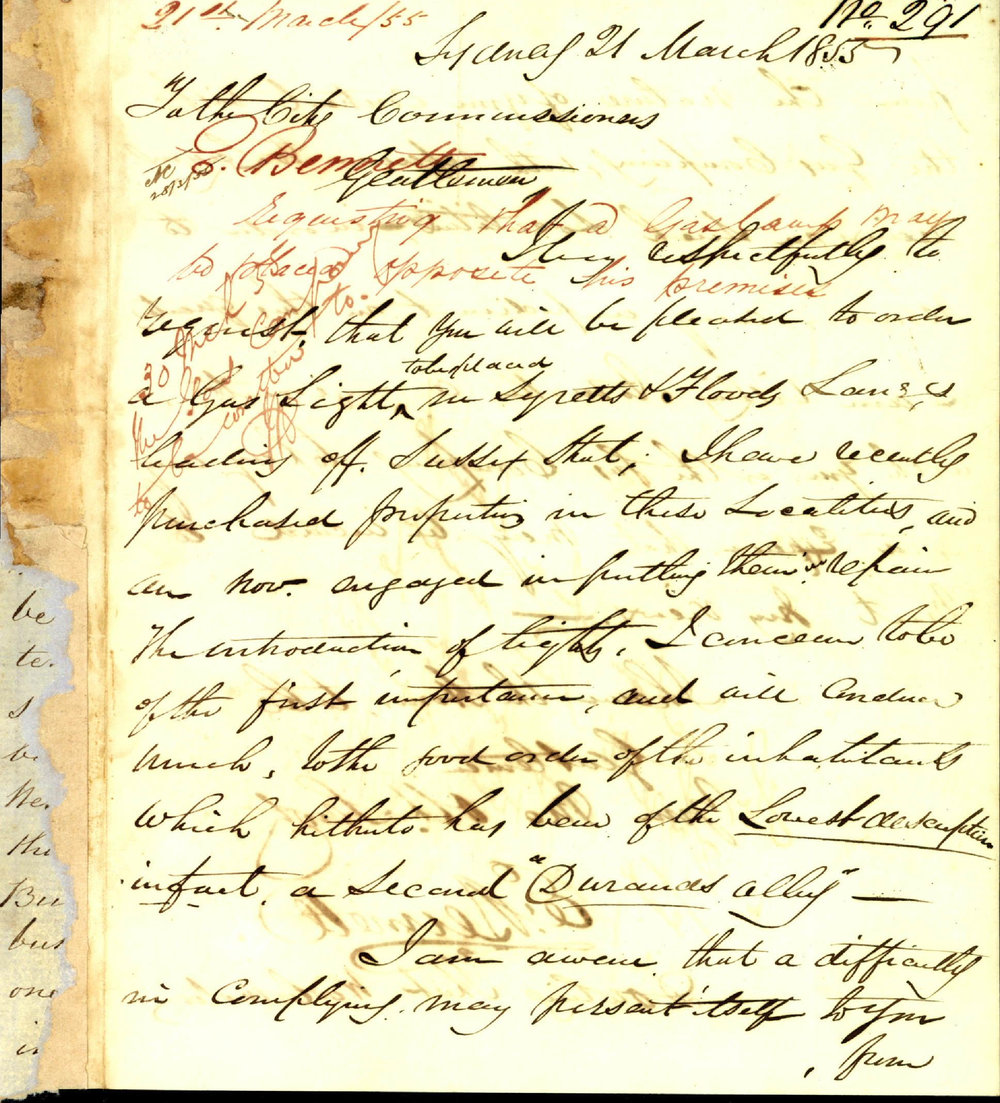 21st March/55
No. 291
Sydney 21 March 1855
To the City Commissioners
Bennett
Gentlemen
requesting that a Gas Lamp may
be placed opposite his premises
I beg respectfully to
request, that you will be pleased to order
to be placed
a Gas Light, in Syretts & Floods Lanes
leading off Sussex Street; I have recently
purchased properties in these Localities, and
am now engaged in putting them in repair
The introduction of lights, I conceive to be
of the first importance, and will conduce
much, to the good order of the inhabitants
which hitherto has been of the Lowest description
in fact, a second "Durands alley" —
I am aware that a difficulty
in complying may persent itself to you
, from
be
te.
s
the
But
but
one
in